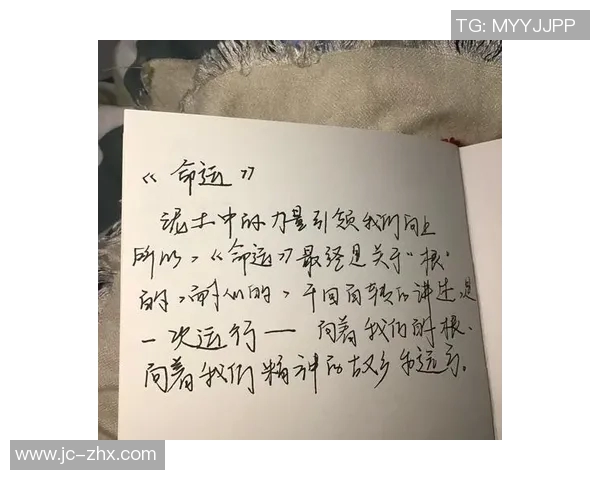 TG: MYYJJPP
《命运》
泥土中的力量引领我们向上
所以,《命运》最终是关于“根”
的,耐人的,千回百转的讲述,是
一次运行——向着我们的根、
向着我们精神的故乡和远方。
www.jc-zhx.com